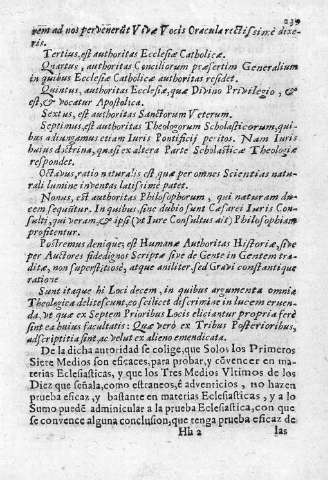 239
rem ad nos pervenerũt Vivæ Vocis Oracula rectissimè dixeris.
Tertius, est authoritas Ecclesiæ Catholicæ.
Quartus, authoritas Conciliorum præsertim Generalium
in quibus Ecclesiæ Catholicæ authoritas residet.
Quintus, authoritas Ecclesiæ, quæ Divino Privilegio, &
est, & vocatur Apostolica.
Sextus, est authoritas Sanctorum Veterum.
Septimus, est authoritas Theologorum Scholasticorum, quibus adiungamus etiam Iuris Pontificij peritos. Nam Iuris
huius dictrina, quasi ex altera Parte Scholasticæ Theologiæ
respondet.
Octavus, ratio naturalis est quæ per omnes Scientias naturali lumine inventas latissimè patet.
Nonus, est authoritas Philosophorum, qui naturam ducem sequũtur. In quibus, sine dubio sunt Cæsarei Iuris Consulti, qui veram, & ipsi (ut Iure Consultus ait) Philosophiam
profitentur.
Postremus denique, est Humanæ Authoritas Historiæ, sive
per Auctores fide dignos Scriptæ sive de Gente in Gentem traditæ, non superstitiosè, atque aniliter, sed Gravi constantique
ratione.
Sunt itaque hi Loci decem, in quibus argumenta omnia
Theologica delitescunt, eo scilicet discrimine in lucem eruenda, vt quæ ex Septem Prioribus Locis eliciantur propria ferè
sint ea huius facultatis: Quæ verò ex Tribus Posterioribus,
adscriptitia sint, ac velut ex alieno emendicata.
De la dicha autoridad se colige, que Solos los Primeros
Siete Medios son eficaces, para probar, y cõvencer en materias Eclesiasticas, y que los Tres Medios Vltimos de los
Diez que señala, como estraneos, é adventicios, no hazen
prueba eficaz, y bastante en materias Eclesiasticas, y a lo
Sumo puedẽ adminicular a la prueba Eclesiastica, con que
se convence alguna conclusion, que tenga prueba eficaz de
Hh 2 las